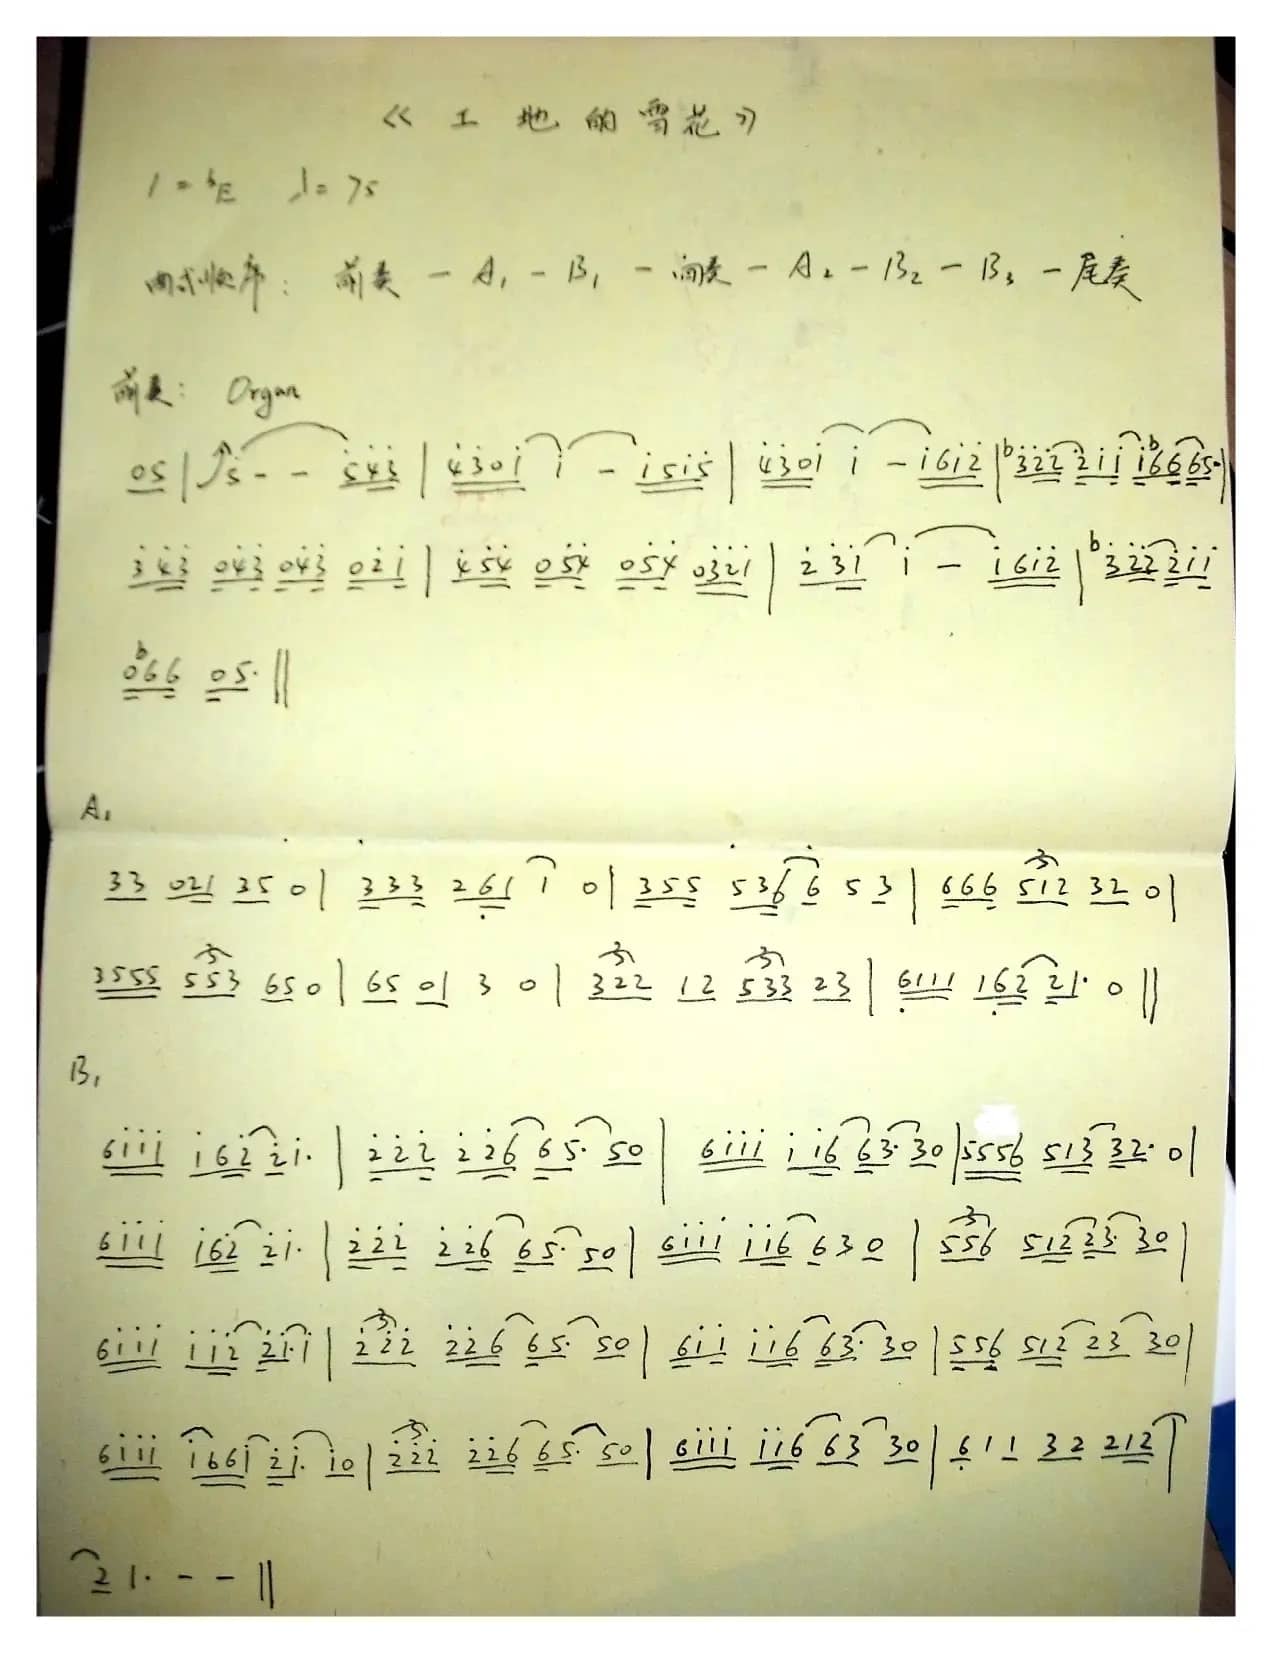 《工地的雪花》
1=♭E ♩=75
曲式顺序: 前奏 - A₁ - B₁ - 间奏 - A₂ - B₂ - B₃ - 尾奏
前奏: Organ
05 | 5 - - 543 | 4301 1 - 1515 | 4301 1 - 1612 | ♭322 211 1♭66 65· |
343 043 043 021 | 454 054 054 0321 | 231 1 - 1612 | ♭322 211
0♭66 05· ‖
A₁
33 021 35 0 | 333 261 1 0 | 355 536 6 5 3 | 666 512 32 0 |
3555 553 650 | 65 01 3 0 | 322 12 533 23 | 6111 162 21· 0 ‖
B₁
6111 162 21· | 222 226 65· 50 | 6111 116 63· 30 | 5556 513 32· 0 |
6111 162 21· | 222 226 65· 50 | 6111 116 63 0 | 556 512 23· 30 |
6111 112 21·1 | 222 226 65· 50 | 611 116 63· 30 | 556 512 23 30 |
6111 1661 21· 10 | 222 226 65· 50 | 6111 116 63 30 | 61 1 32 212 |
21· - - ‖